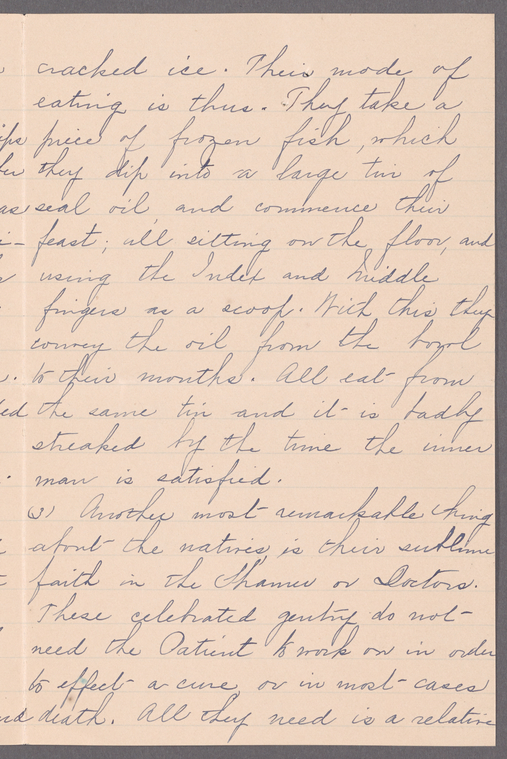 cracked ice. Their mode of
eating is thus. They take a
piece of frozen fish, which
they dip into a large tin of
seal oil, and commence their
feast; all sitting on the floor, and
using the Index and Middle
fingers as a scoop. With this they
convey the oil from the bowl
to their mouths. All eat from
the same tin and it is badly
streaked by the time the inner
man is satisfied.
(3) Another most remarkable thing
about the natives, is their sublime
faith in the Shamen or Doctors.
These celebrated gentry do not
need the Patient to work on in order
to effect a cure, or in most cases
death. All they need is a relative